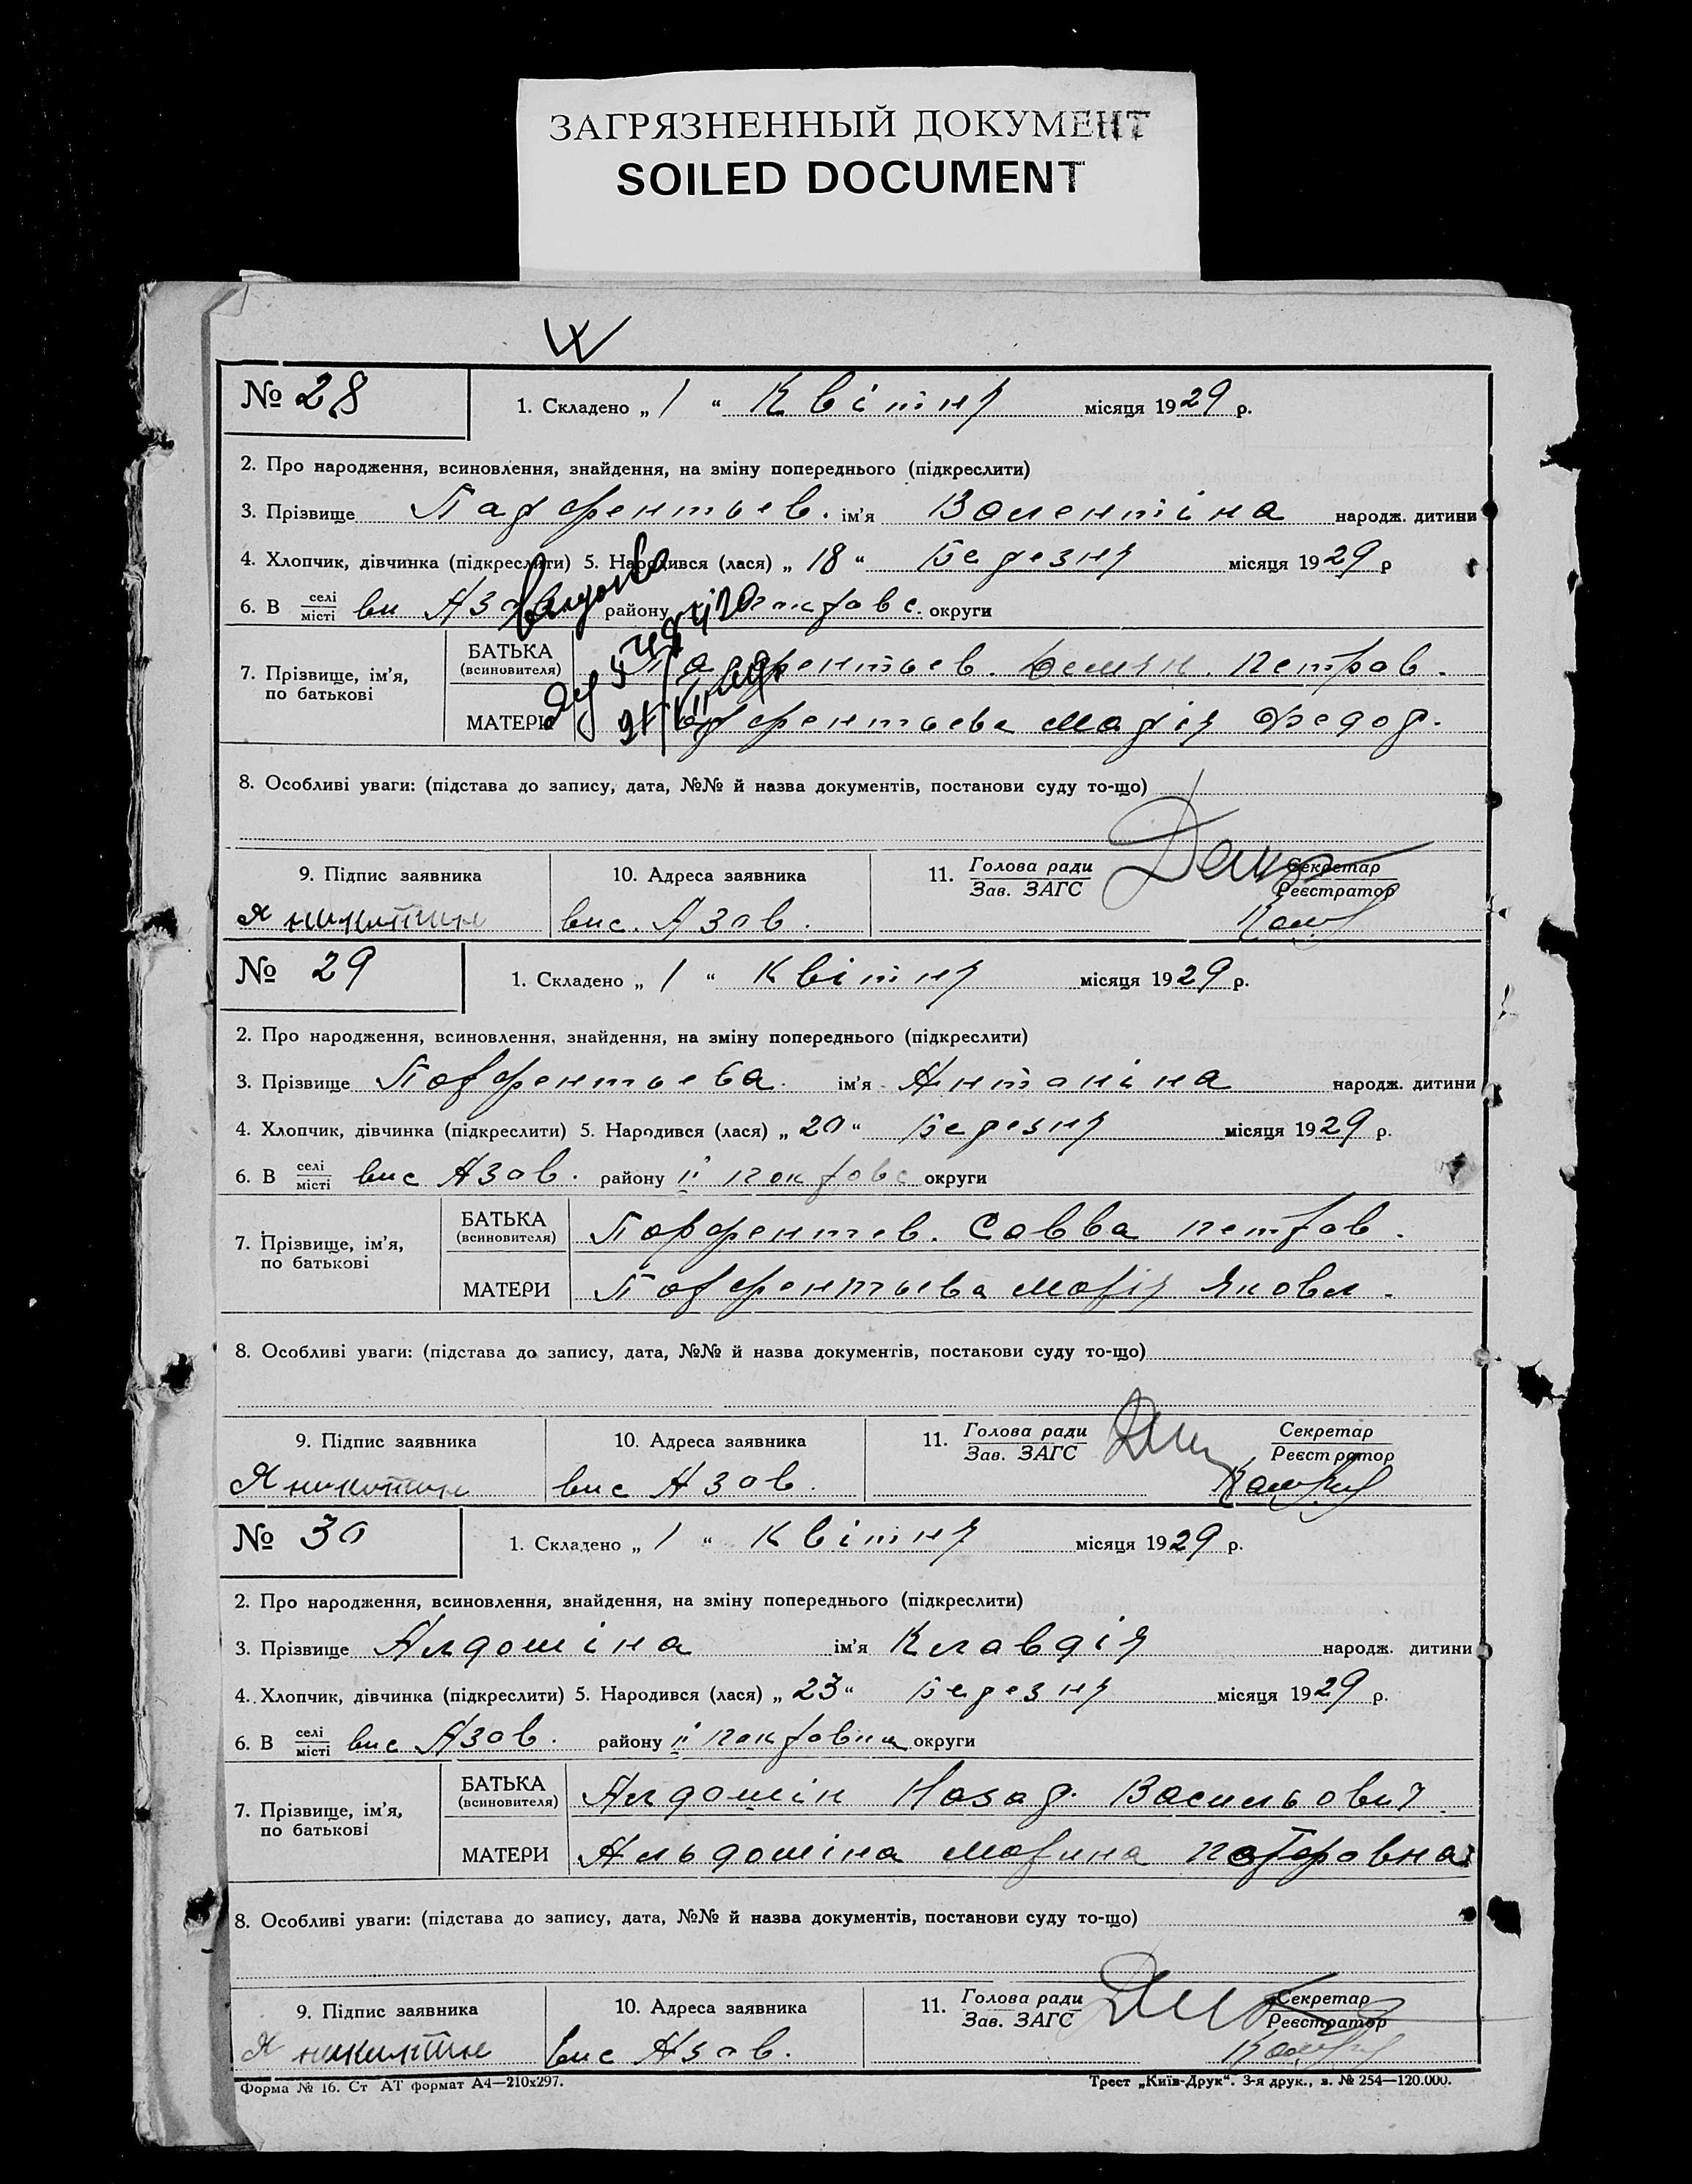 ЗАГРЯЗНЕННЫЙ ДОКУМЕНТ
SOILED DOCUMENT
№ 28
1. Складено „ 1 “ Квітня місяця 1929 р.
2. Про народження, всиновлення, знайдення, на зміну попереднього (підкреслити)
3. Прізвище Парфентьев. ім'я Валентіна народж. дитини
4. Хлопчик, дівчинка (підкреслити) 5. Народився (лася) „ 18 “ Березня місяця 1929 р
6. В селі/місті вис Азов району покровс. округи
7. Прізвище, ім'я, по батькові
БАТЬКА (всиновителя) Парфентьев. Демян. Петров.
МАТЕРИ Парфентьева Марія Федор.
8. Особливі уваги: (підстава до запису, дата, №№ й назва документів, постанови суду то-що)
9. Підпис заявника
10. Адреса заявника
11. Голова ради/Зав. ЗАГС
Секретар/Реєстратор
Я никитин вис. Азов.
№ 29
1. Складено „ 1 “ Квітня місяця 1929 р.
2. Про народження, всиновлення, знайдення, на зміну попереднього (підкреслити)
3. Прізвище Парфентьева. ім'я Антаніна народж. дитини
4. Хлопчик, дівчинка (підкреслити) 5. Народився (лася) „ 20 “ Березня місяця 1929 р.
6. В селі/місті вис Азов. району ІІ покровс округи
7. Прізвище, ім'я, по батькові
БАТЬКА (всиновителя) Парфентев. Савва петров.
МАТЕРИ Парфентьева Марія Яковл.
8. Особливі уваги: (підстава до запису, дата, №№ й назва документів, постанови суду то-що)
9. Підпис заявника
10. Адреса заявника
11. Голова ради/Зав. ЗАГС
Секретар/Реєстратор
Я никитин вис Азов.
№ 30
1. Складено „ 1 “ Квітня місяця 1929 р.
2. Про народження, всиновлення, знайдення, на зміну попереднього (підкреслити)
3. Прізвище Алдошіна ім'я Клавдія народж. дитини
4. Хлопчик, дівчинка (підкреслити) 5. Народився (лася) „ 23 “ Березня місяця 1929 р.
6. В селі/місті вис Азов. району ІІ округи
7. Прізвище, ім'я, по батькові
БАТЬКА (всиновителя) Алдошін Назар. Васильович.
МАТЕРИ Альдошіна Марина
8. Особливі уваги: (підстава до запису, дата, №№ й назва документів, постанови суду то-що)
9. Підпис заявника
10. Адреса заявника
11. Голова ради/Зав. ЗАГС
Секретар/Реєстратор
Я никитин вис Азов.
Форма № 16. Ст АТ формат А4—210х297.
Трест „Київ-Друк“. 3-я друк., з. № 254—120.000.